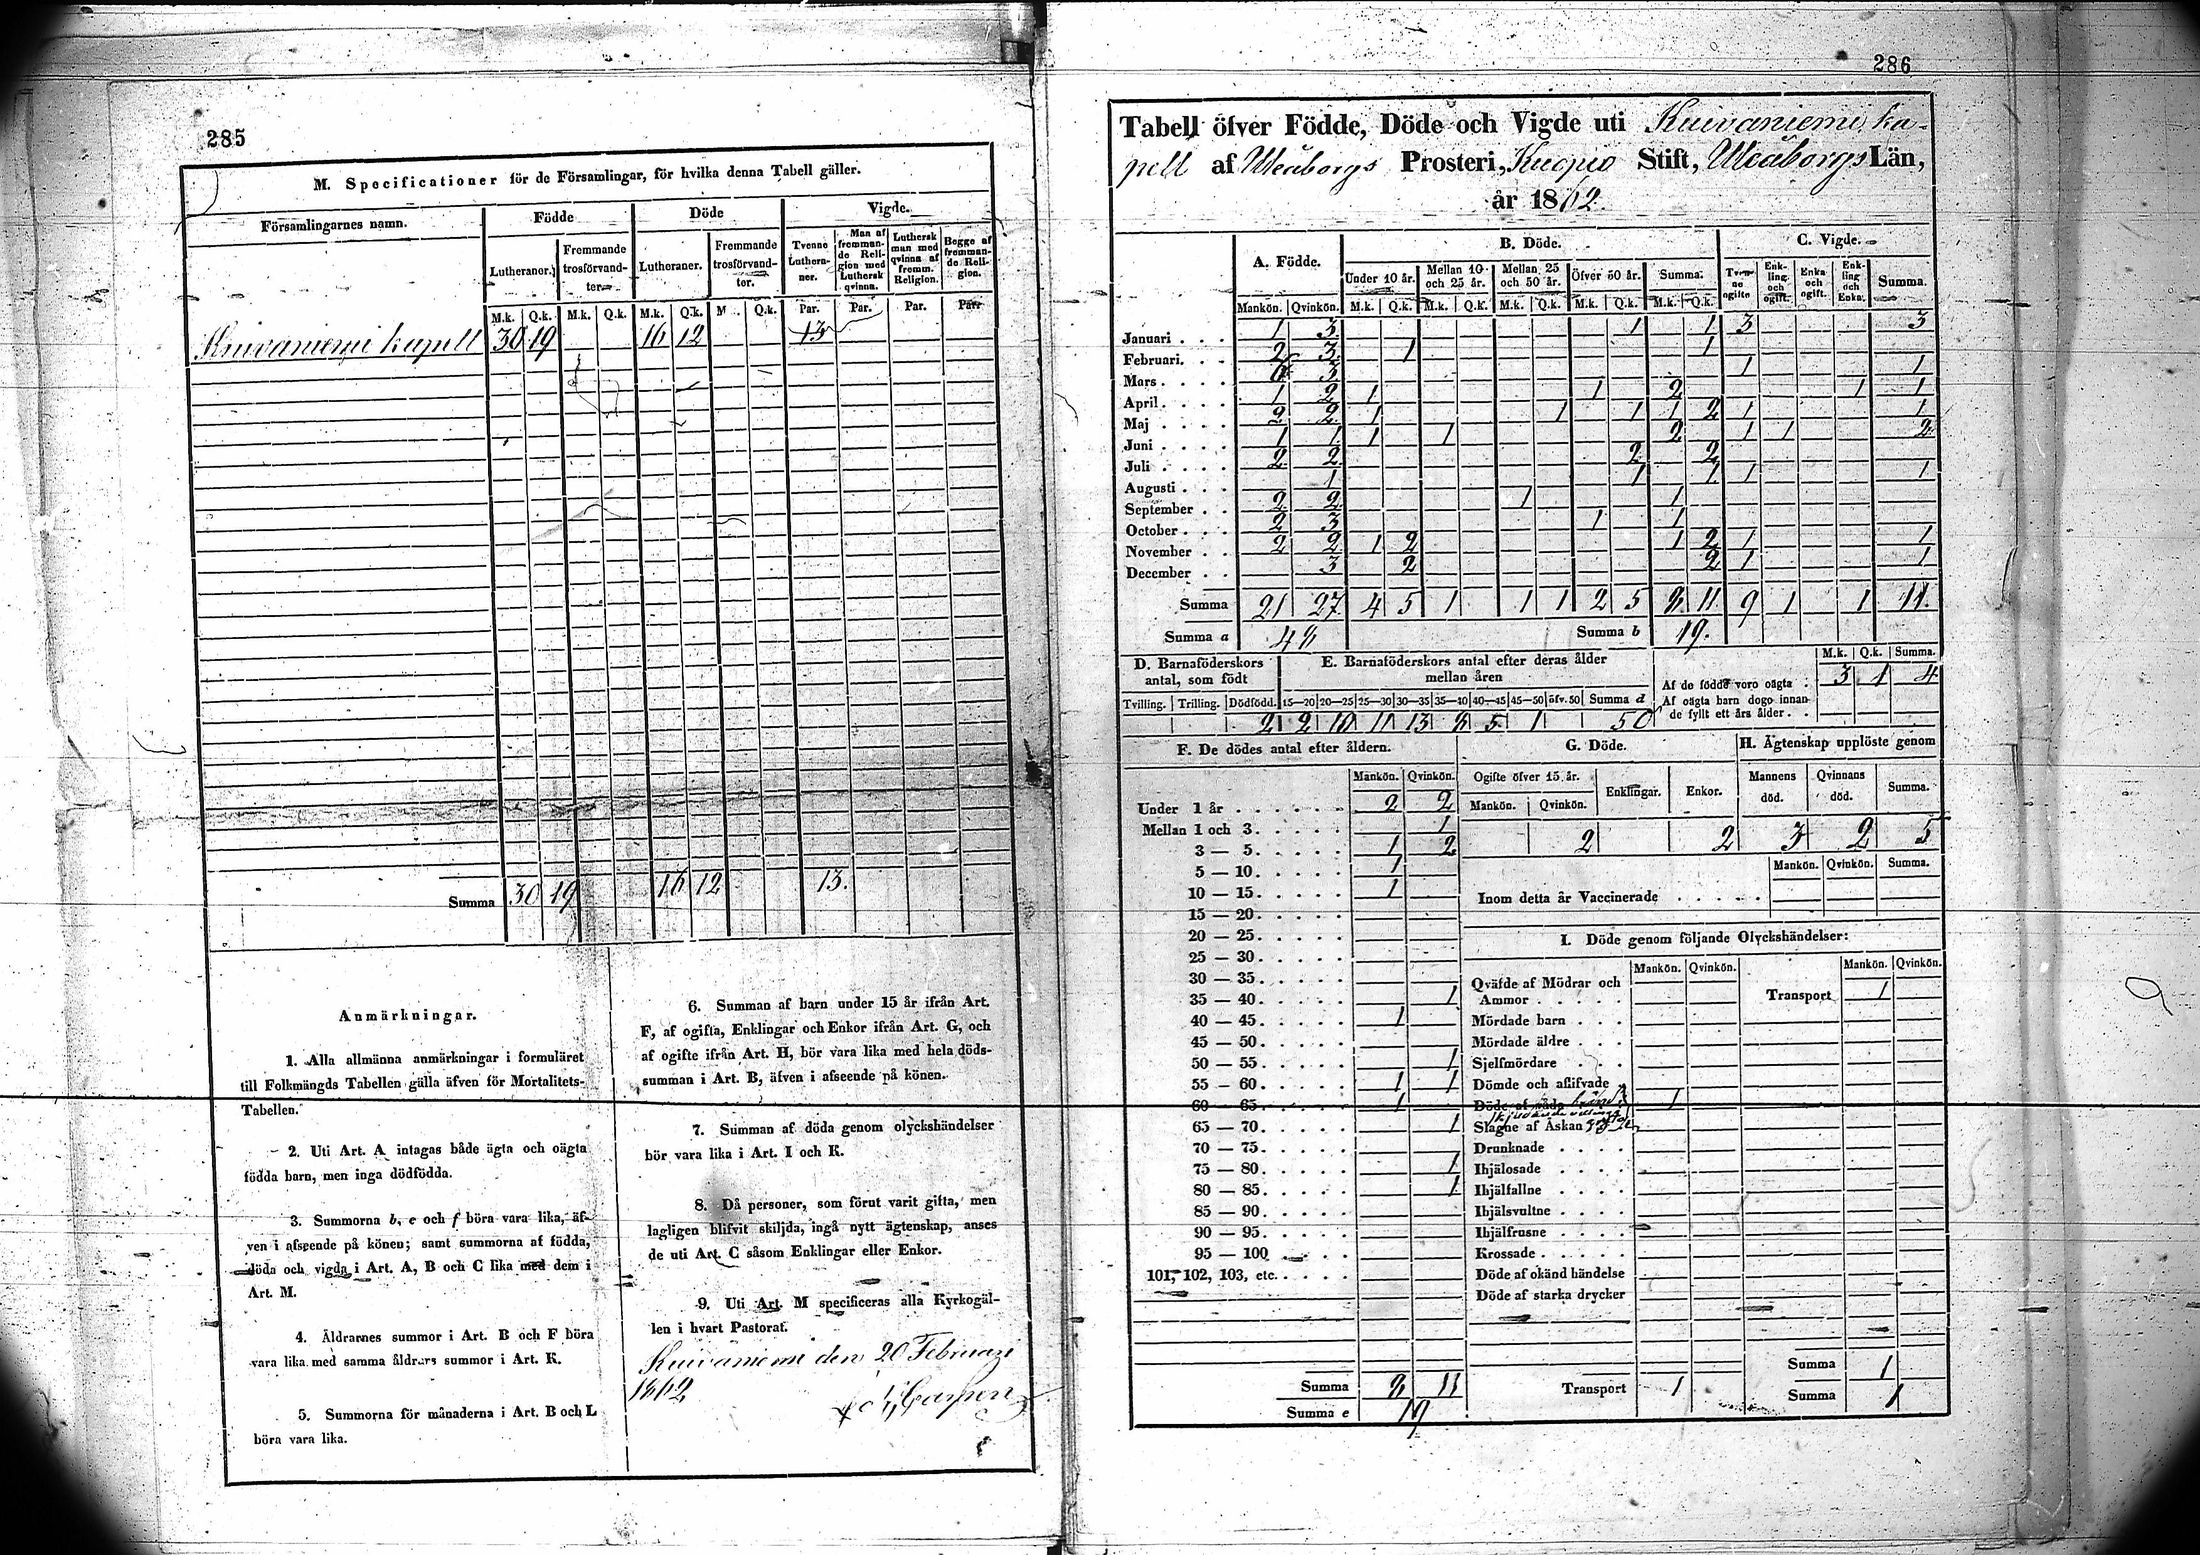 285
M. Specificationer för de Församlingar, för hvilka denna Tabell gäller.
Församlingarnes namn. Födde Döde Vigde.
Lutheraner. Fremmande trosförvandter. Lutheraner. Fremmande trosförvandter. Tvenne Lutheraner. Man af fremmande Religion med Luthersk qvinna. Luthersk man med qvinna af fremm. Religion. Begge af fremmande Religion.
M.k. Q.k. M.k. Q.k. M.k. Q.k. M. Q.k. Par. Par. Par. Par.
Kuivaniemi kapell 30 19 16 12 13
Summa 30 19 16 12 13.
Anmärkningar.
1. Alla allmänna anmärkningar i formuläret
till Folkmängds Tabellen gälla äfven för Mortalitets-
Tabellen.
2. Uti Art. A intagas både ägta och oägta
födda barn, men inga dödfödda.
3. Summorna b, e och f böra vara lika, äf-
ven i afseende på könen; samt summorna af födda,
döda och vigda i Art. A, B och C lika med dem i
Art. M.
4. Åldrarnes summor i Art. B och F böra
vara lika med samma åldrars summor i Art. K.
5. Summorna för månaderna i Art. B och L
böra vara lika.
6. Summan af barn under 15 år ifrån Art.
F, af ogifta, Enklingar och Enkor ifrån Art. G, och
af ogifte ifrån Art. H, bör vara lika med hela döds-
summan i Art. B, äfven i afseende på könen.
7. Summan af döda genom olyckshändelser
bör vara lika i Art. I och K.
8. Då personer, som förut varit gifta, men
lagligen blifvit skiljda, ingå nytt ägtenskap, anses
de uti Art. C såsom Enklingar eller Enkor.
9. Uti Art. M specificeras alla Kyrkogäl-
len i hvart Pastorat.
Kuivaniemi den 20 Februari
1862
286
Tabell öfver Födde, Döde och Vigde uti Kuivaniemi ka-
pell af Uleåborgs Prosteri, Kuopio Stift, Uleåborgs Län,
år 1862.
A. Födde. B. Döde. C. Vigde.
Under 10 år. Mellan 10 och 25 år. Mellan 25 och 50 år. Öfver 50 år. Summa. Tvenne ogifte Enkling och ogift. Enka och ogift. Enkling och Enka. Summa.
Mankön. Qvinkön. M.k. Q.k. M.k. Q.k. M.k. Q.k. M.k. Q.k. M.k. Q.k.
Januari . . . 1 3 1 1 3 3
Februari. . . 2 3 1 1
Mars . . . . 6 3 1 1
April . . . . 1 2 1 1 2 1 1
Maj . . . . 2 2 1 1 1 1 2 1 1
Juni . . . . 1 1 1 1 2 1 1 2
Juli . . . . 2 2 2 2
Augusti . . . 1 1 1 1 1
September . . 2 2 1 1
October . . . 2 3 1 1
November . . 2 2 1 2 1 2 1 1
December . . 3 2 2 1 1
Summa 21 27 4 5 1 1 1 2 5 8 11 9 1 1 11.
Summa a 48 Summa b 19.
D. Barnaföderskors antal, som födt
E. Barnaföderskors antal efter deras ålder mellan åren
M.k. Q.k. Summa.
Af de födde voro oägta . 3 1 4
Af oägta barn dogo innan
de fyllt ett års ålder . .
Tvilling. Trilling. Dödfödd. 15—20 20—25 25—30 30—35 35—40 40—45 45—50 öfv. 50 Summa d
2 2 10 11 13 8 5 1 50
F. De dödes antal efter åldern.
Mankön. Qvinkön.
Under 1 år . . . . . . 2 2
Mellan 1 och 3. . . . . 1
3 — 5. . . . . 1 2
5 — 10. . . . . 1
10 — 15. . . . . 1
15 — 20. . . . .
20 — 25. . . . .
25 — 30. . . . .
30 — 35. . . . .
35 — 40. . . . . 1
40 — 45. . . . . 1
45 — 50. . . . .
50 — 55. . . . . 1
55 — 60. . . . . 1 1
60 — 65. . . . . 1
65 — 70. . . . . 1
70 — 75. . . . .
75 — 80. . . . . 1
80 — 85. . . . . 1
85 — 90. . . . .
90 — 95. . . . .
95 — 100 . . . .
101, 102, 103, etc. . . . .
Summa 8 11
Summa e 19
G. Döde. H. Ägtenskap upplöste genom
Ogifte öfver 15 år. Enklingar. Enkor. Mannens död. Qvinnans död. Summa.
Mankön. Qvinkön.
2 2 3 2 5
Mankön. Qvinkön. Summa.
Inom detta år Vaccinerade . . . . .
I. Döde genom följande Olyckshändelser:
Mankön. Qvinkön. Mankön. Qvinkön.
Qväfde af Mödrar och
Ammor . . . . . Transport 1
Mördade barn . . .
Mördade äldre . . .
Sjelfmördare . . .
Dömde och aflifvade .
Döde af våda 1
Slagne af Åskan
Drunknade . . . .
Ihjälosade . . . .
Ihjälfallne . . . .
Ihjälsvultne . . . .
Ihjälfrusne . . . .
Krossade . . . . .
Döde af okänd händelse
Döde af starka drycker
Summa 1
Transport 1 Summa 1